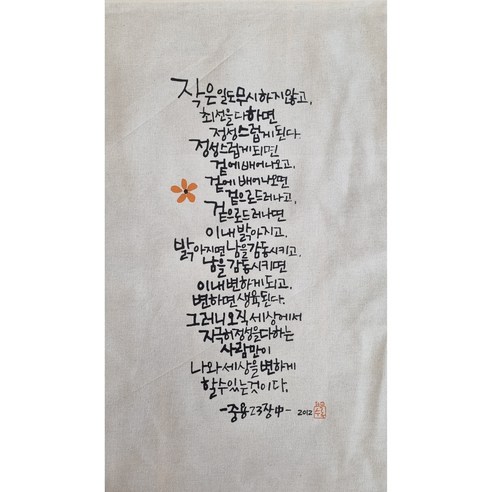 작은 일도 무시하지 않고,
최선을 다하면
정성스럽게 된다.
정성스럽게 되면
겉에 배어나오고,
겉에 배어나오면
겉으로 드러나고,
겉으로 드러나면
이내 밝아지고.
밝아지면 남을 감동시키고,
남을 감동시키면
이내 변하게 되고,
변하면 생육된다.
그러니 오직 세상에서
지극히 정성을 다하는
사람만이
나와 세상을 변하게
할 수 있는 것이다.
-중용 23장 中- 2012